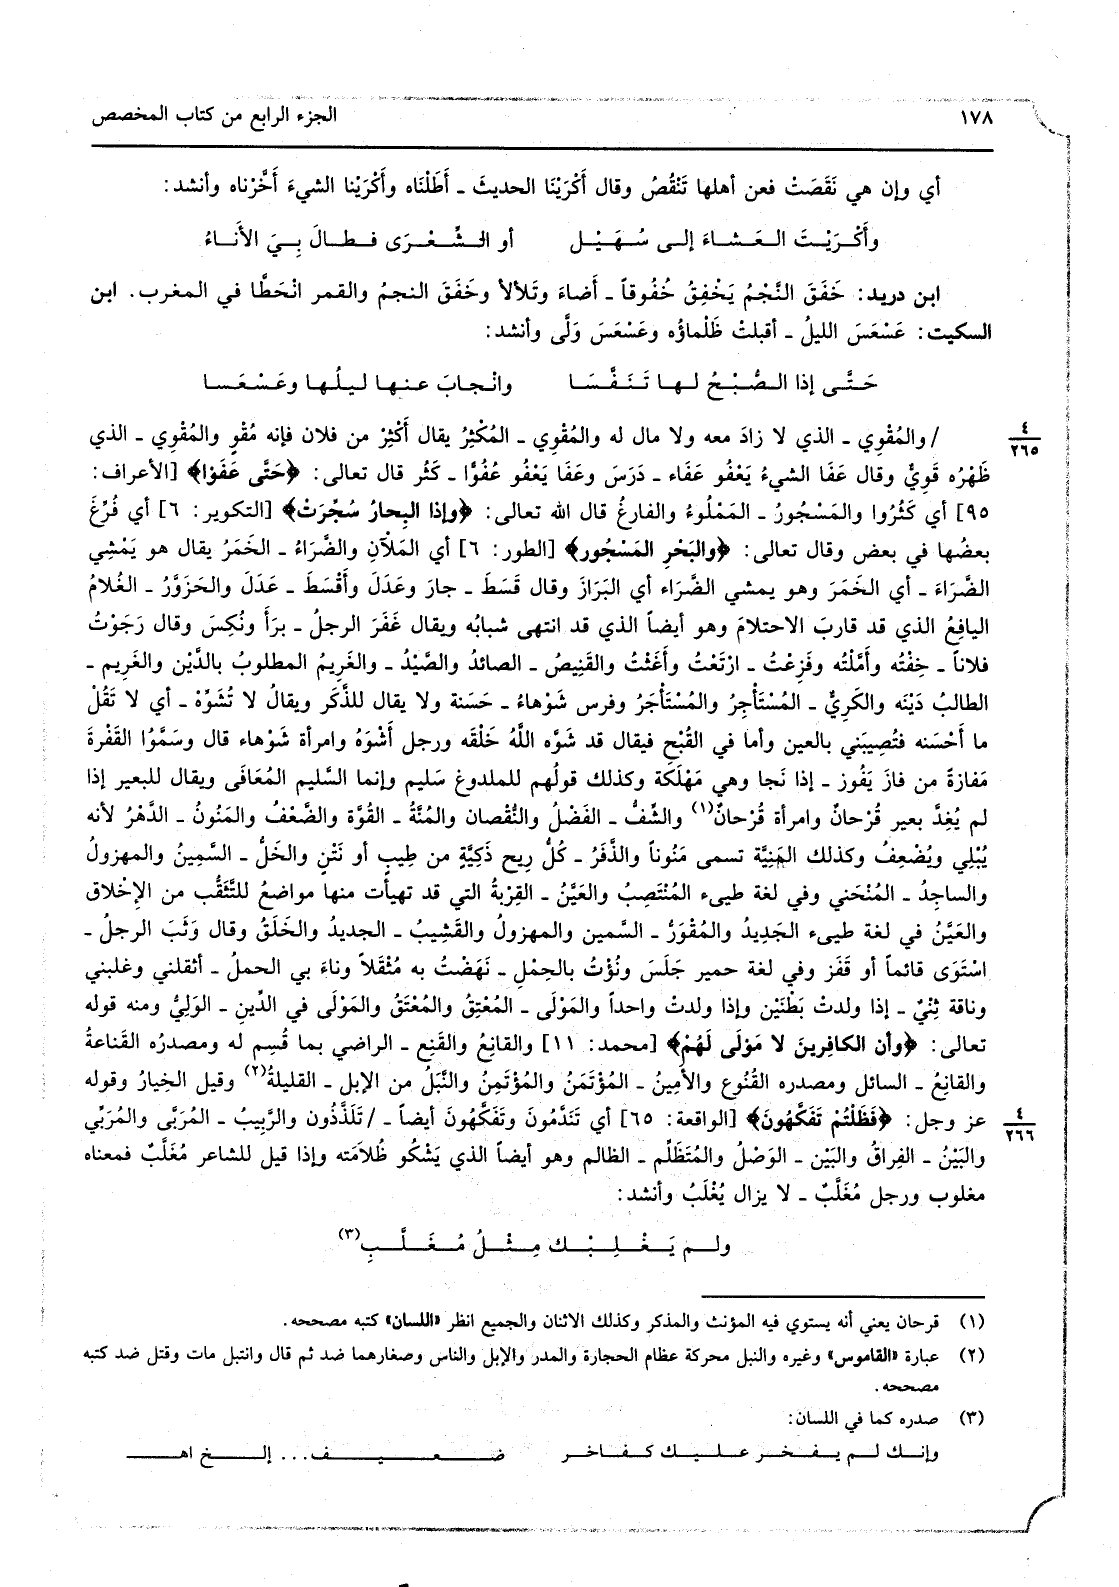 ١٧٨ الجزء الرابع من كتاب المخصص
أي وإن هي نَقَصَتْ فعن أهلها تَنْقُصُ وقال أَكْرَيْنَا الحديثَ ـ أَطَلْنَاه وأَكْرَيْنا الشيءَ أَخَّرْناه وأنشد:
وأَكْـرَيْـتَ الـعَـشـاءَ إلـى سُـهَـيْـلٍ أو الـشِّـعْـرَى فـطـالَ بِـيَ الأَنـاءُ
ابن دريد: خَفَقَ النَّجْمُ يَخْفِقُ خُفُوقاً ـ أَضاءَ وتَلألأ وخَفَقَ النجمُ والقمر انْحَطَّا في المغرب. ابن
السكيت: عَسْعَسَ الليلُ ـ أقبلتْ ظَلْماؤه وعَسْعَسَ وَلَّى وأنشد:
حَـتَّـى إذا الـصُّـبْـحُ لـهـا تَـنَـفَّـسَـا وانْـجـابَ عـنـهـا لـيـلُـهـا وعَـسْـعَـسـا
/ والمُقْوِي ـ الذي لا زادَ معه ولا مال له والمُقْوِي ـ المُكْثِرُ يقال أَكْثِرْ من فلان فإنه مُقْوٍ والمُقْوِي ـ الذي
٤
٢٦٥
ظَهْرُه قَوِيٌّ وقال عَفَا الشيءُ يَعْفُو عَفَاء ـ دَرَسَ وعَفَا يَعْفُو عُفُوًّا ـ كَثُر قال تعالى: ﴿حَتَّى عَفَوْا﴾ [الأعراف:
٩٥] أي كَثُرُوا والمَسْجُورُ ـ المَمْلُوءُ والفارغُ قال الله تعالى: ﴿وإذا البِحارُ سُجِّرَتْ﴾ [التكوير: ٦] أي فُرِّغَ
بعضُها في بعض وقال تعالى: ﴿والبَحْرِ المَسْجُورِ﴾ [الطور: ٦] أي المَلْآنِ والضَّرَاءُ ـ الخَمَرُ يقال هو يَمْشِي
الضَّرَاءَ ـ أي الخَمَرَ وهو يمشي الضَّرَاء أي البَرَازَ وقال قَسَطَ ـ جارَ وعَدَلَ وأَقْسَطَ ـ عَدَلَ والحَزَوَّرُ ـ الغُلامُ
اليافِعُ الذي قد قاربَ الاحتلامَ وهو أيضاً الذي قد انتهى شبابُه ويقال غَفَرَ الرجلُ ـ برَأَ ونُكِسَ وقال رَجَوْتُ
فلاناً ـ خِفْتُه وأَمَّلْتُه وفَزِعْتُ ـ ارْتَعْتُ وأَغَثْتُ والقَنِيصُ ـ الصائدُ والصَّيْدُ ـ والغَرِيمُ المطلوبُ بالدَّيْن والغَرِيم ـ
الطالبُ دَيْنَه والكَرِيُّ ـ المُسْتَأْجِرُ والمُسْتَأْجَرُ وفرس شَوْهاءُ ـ حَسَنة ولا يقال للذَّكَر ويقالُ لا تُشَوِّهْ ـ أي لا تَقُلْ
ما أَحْسَنه فتُصِيبَني بالعين وأما في القُبْح فيقال قد شَوَّه اللَّهُ خَلْقَه ورجل أَشْوَهُ وامرأة شَوْهاء قال وسَمَّوُا القَفْرةَ
مَفازةً من فازَ يَفُوز ـ إذا نَجا وهي مَهْلَكَة وكذلك قولُهم للملدوغ سَليم وإنما السَّليم المُعَافَى ويقال للبعير إذا
لم يُغِدَّ بعير قُرْحانٌ وامرأة قُرْحانٌ(١) والشِّفُّ ـ الفَضْلُ والنُّقْصان والمُنَّةُ ـ القُوَّة والضَّعْفُ والمَنُونُ ـ الدَّهْرُ لأنه
يُبْلِي ويُضْعِفُ وكذلك المَنِيَّة تسمى مَنُوناً والذَّفَرُ ـ كُلُّ رِيحٍ ذَكِيَّةٍ من طِيبٍ أو نَتْنٍ والخَلُّ ـ السَّمِينُ والمهزولُ
والساجِدُ ـ المُنْحَني وفي لغة طيىء المُنْتَصِبُ والعَيَّنُ ـ القِرْبةُ التي قد تهيأت منها مواضعُ للتَّثَقُّب من الإخْلاق
والعَيَّنُ في لغة طيىء الجَدِيدُ والمُقْوَرُّ ـ السَّمين والمهزولُ والقَشِيبُ ـ الجديدُ والخَلَقُ وقال وَثَبَ الرجلُ ـ
اسْتَوَى قائماً أو قَفَز وفي لغة حمير جَلَسَ ونُؤْتُ بالحِمْلِ ـ نَهَضْتُ به مُثْقَلاً وناءَ بي الحملُ ـ أثقلني وغلبني
وناقة ثِنْيٌ ـ إذا ولدتْ بَطْنَيْن وإذا ولدتْ واحداً والمَوْلَى ـ المُعْتِقُ والمُعْتَقُ والمَوْلَى في الدِّينِ ـ الوَلِيُّ ومنه قوله
تعالى: ﴿وأن الكافِرِينَ لا مَوْلَى لَهُمْ﴾ [محمد: ١١] والقانِعُ والقَنِع ـ الراضي بما قُسِم له ومصدرُه القَناعةُ
والقانِعُ ـ السائل ومصدره القُنُوع والأَمِينُ ـ المُؤْتَمَنُ والمُؤْتَمِنُ والنَّبَلُ من الإبل ـ القليلةُ(٢) وقيل الخِيارُ وقوله
عز وجل: ﴿فَظَلْتُم تَفَكَّهُونَ﴾ [الواقعة: ٦٥] أي تَنَدَّمُون وتَفَكَّهُونَ أيضاً ـ / تَلَذَّذُون والرَّبِيبُ ـ المُرَبَّى والمُرَبِّي
٤
٢٦٦
والبَيْنُ ـ الفِراقُ والبَيْن ـ الوَصْلُ والمُتَظَلِّم ـ الظالم وهو أيضاً الذي يَشْكُو ظُلامَته وإذا قيل للشاعر مُغَلَّبٌ فمعناه
مغلوب ورجل مُغَلَّبٌ ـ لا يزال يُغْلَبُ وأنشد:
ولـم يَـغْـلِـبْـك مِـثْـلُ مُـغَـلَّـبِ(٣)
(١) قرحان يعني أنه يستوي فيه المؤنث والمذكر وكذلك الاثنان والجميع انظر «اللسان» كتبه مصححه.
(٢) عبارة «القاموس» وغيره والنبل محركة عظام الحجارة والمدر والإبل والناس وصغارهما ضد ثم قال وانتبل مات وقتل ضد كتبه
مصححه.
(٣) صدره كما في اللسان:
وإنـك لـم يـفـخـر عـلـيـك كـفـاخـر ضـعـيـف... إلـخ اهـ